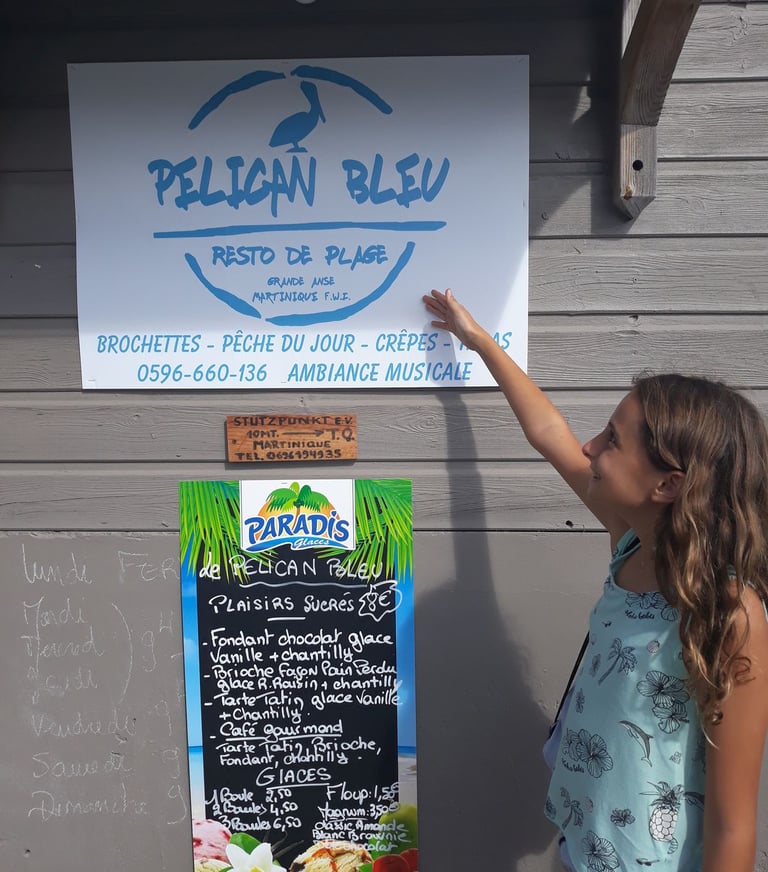 PELICAN BLEU
RESTO DE PLAGE
GRANDE ANSE
MARTINIQUE F.W.I.
BROCHETTES - PÊCHE DU JOUR - CRÊPES -
0596-660-136 AMBIANCE MUSICALE
STÜTZPUNKT E.V.
MARTINIQUE T.O.
TEL. 0696194935
PARADIS
Glaces
de PELICAN BLEU
PLAISIRS SUCRÉS 8€
- Fondant chocolat glace
Vanille + chantilly
- Brioche Façon Pain Perdu
glace R.Raisin + chantilly
- Tarte Tatin glace Vanille
+ Chantilly.
- Café gourmand
Tarte Tatin, Brioche,
Fondant, chantilly.
GLACES
1 Boule 2,50
2 Boules 4,50
3 Boules 6,50
Floup: 1,50€
Magnum: 3,50€
classic Amande
Blanc Brownie
lundi FER
Mardi
Mercred
Jeudi
Vendredi 9
Samedi 9
Dimanche 9